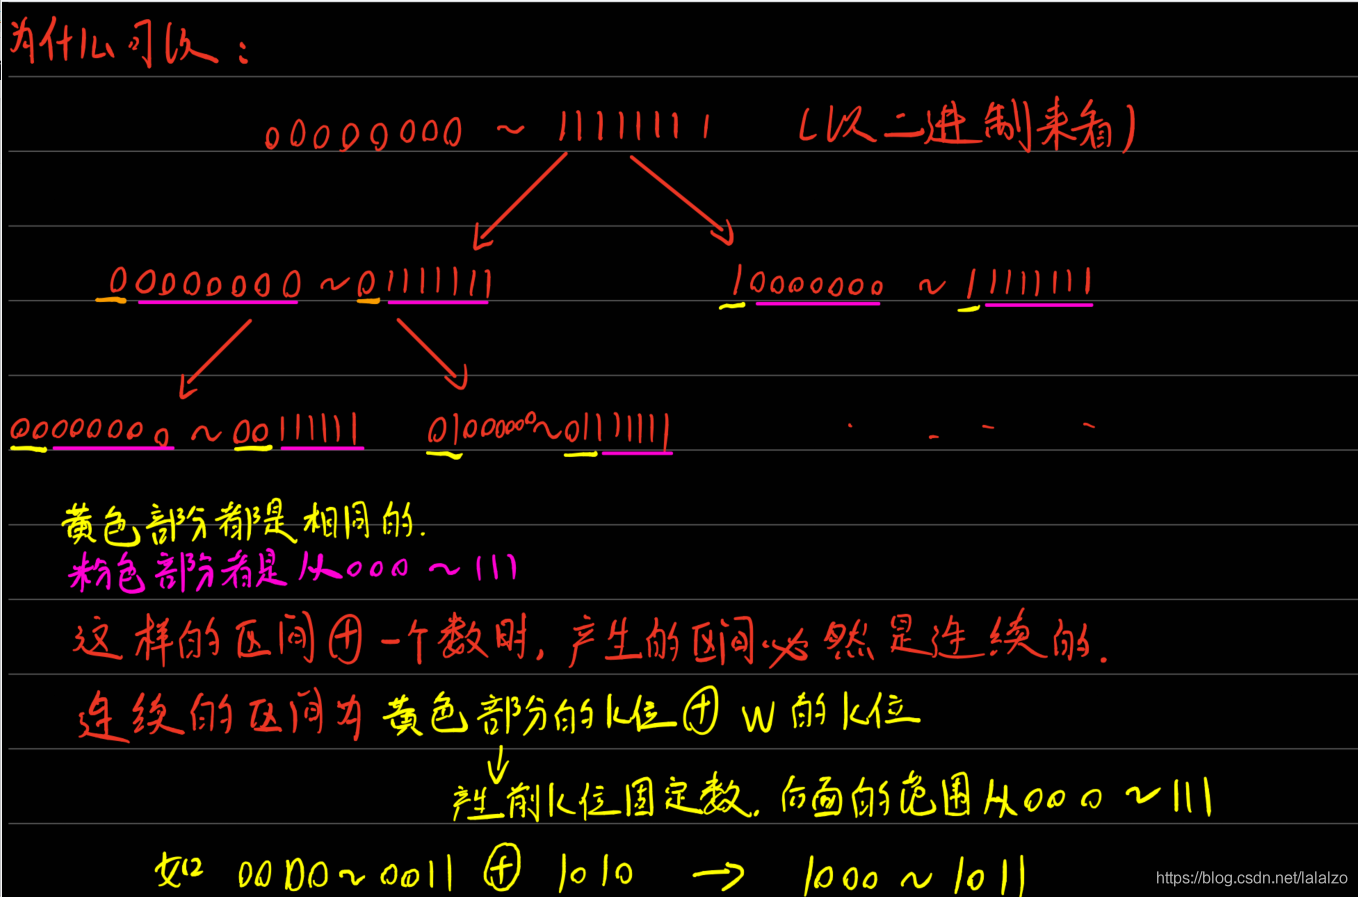 为什么可以：
00000000 ~ 11111111 （以二进制来看）
00000000 ~ 01111111 10000000 ~ 11111111
00000000 ~ 00111111 01000000 ~ 01111111
黄色部分都是相同的.
粉色部分者是从000 ~ 111
这样的区间⊕一个数时, 产生的区间必然是连续的.
连续的区间为 黄色部分的k位⊕ W的k位
产生前k位固定数. 后面的范围从000 ~ 111
如 0000 ~ 0011 ⊕ 1010 → 1000 ~ 1011
https://blog.csdn.net/lalalzo